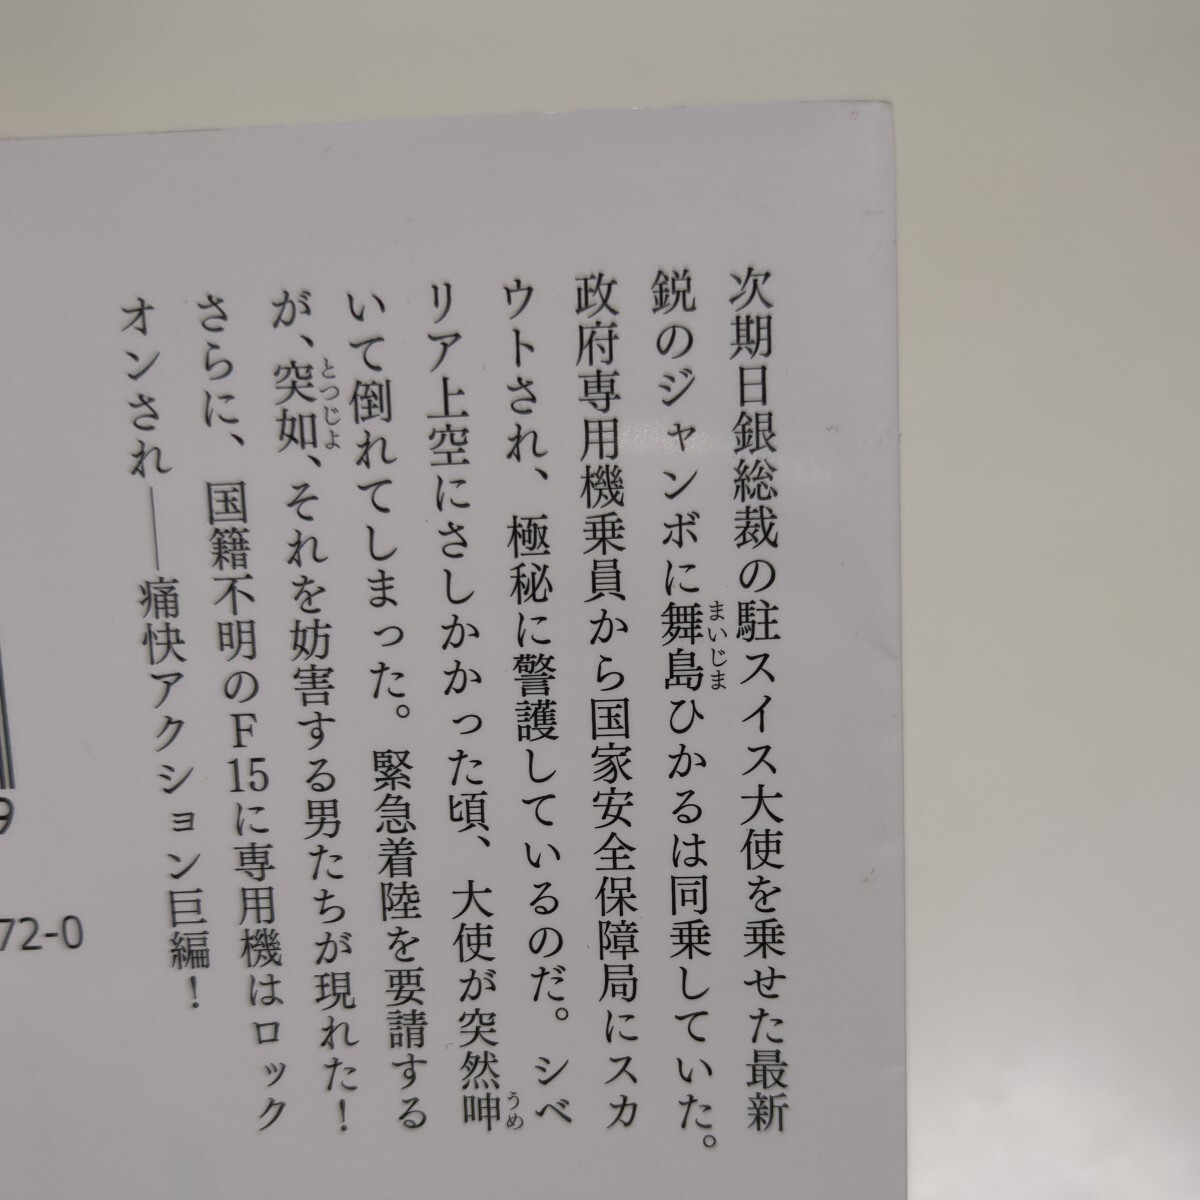 次期日銀総裁の駐スイス大使を乗せた最新
鋭のジャンボに舞島ひかるは同乗していた。
まいじま
政府専用機乗員から国家安全保障局にスカ
ウトされ、極秘に警護しているのだ。シベ
リア上空にさしかかった頃、大使が突然呻
うめ
いて倒れてしまった。緊急着陸を要請する
が、突如、それを妨害する男たちが現れた！
とつじよ
さらに、国籍不明のF15に専用機はロック
オンされ――痛快アクション巨編！
72-0
9